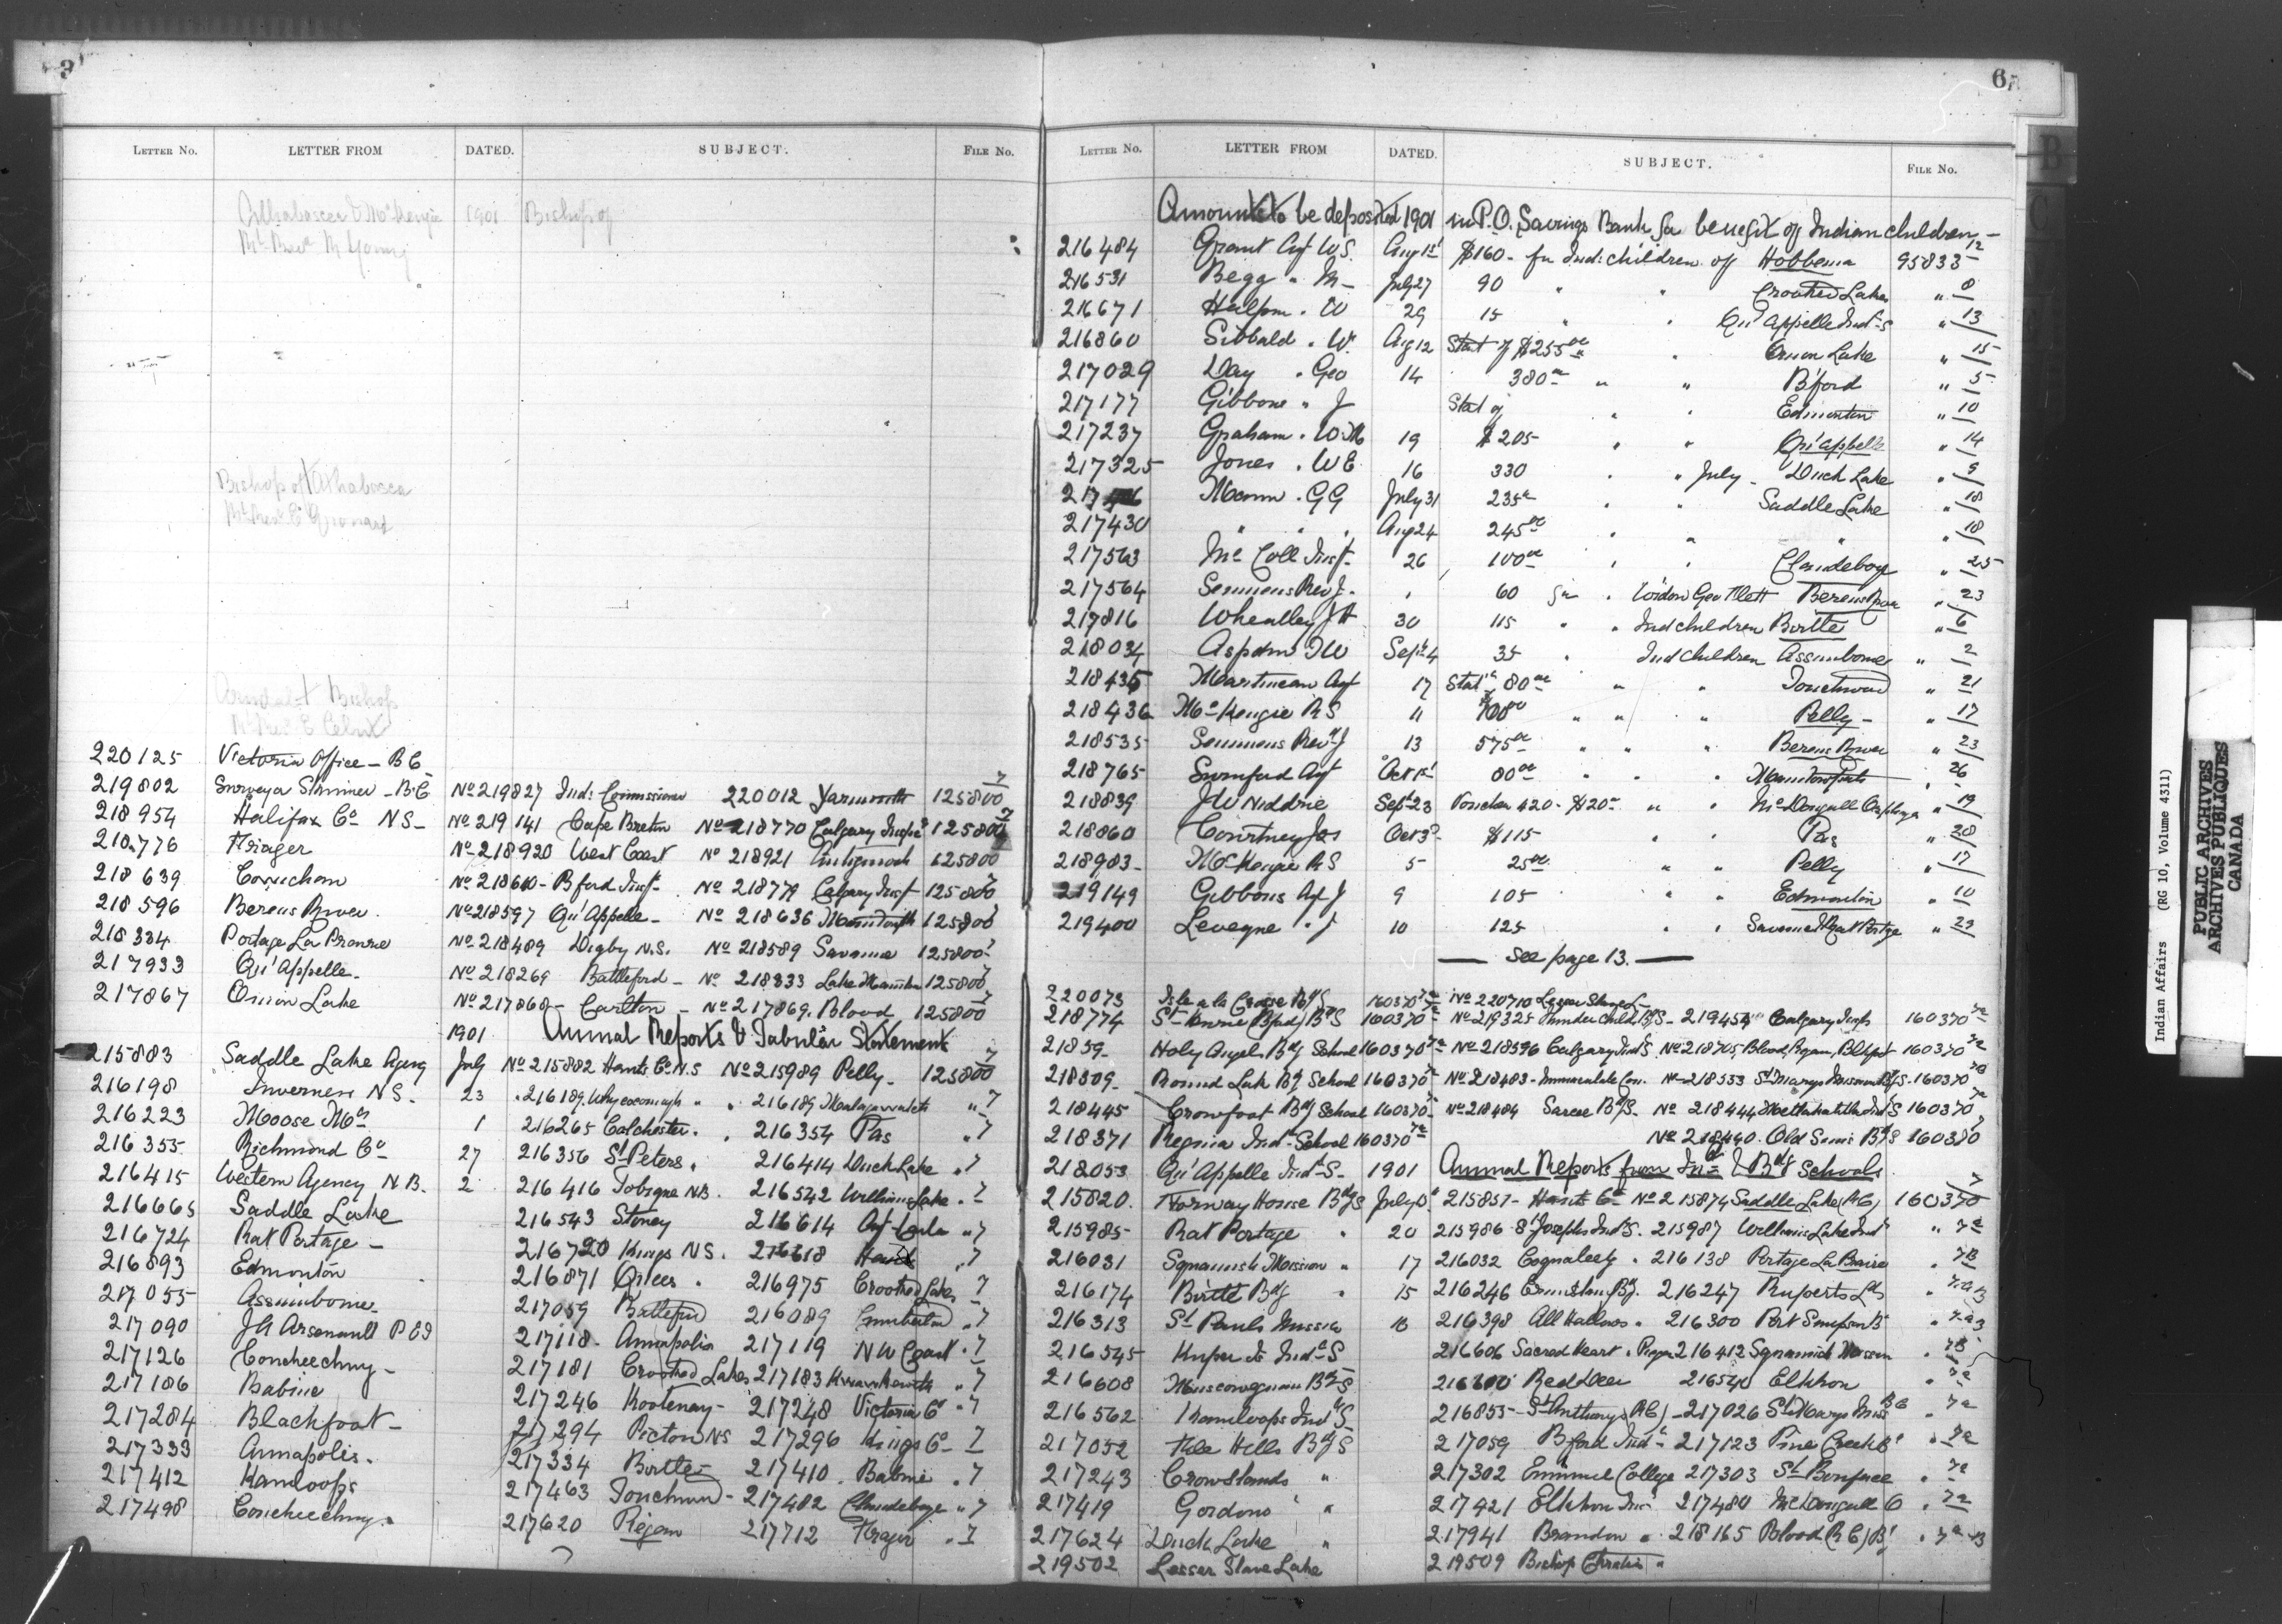 3
LETTER NO. LETTER FROM DATED. SUBJECT. FILE NO.
Athabasca & McKenzie 1901 Bishop of
Rt Revd M Young
Bishop of Athabasca
Rt Revd E Grouard
Bishop
220125 Victoria Office - B C
219802 Surveya Simmer - B.C No 219827 Ind: Commissioner 220012 Yarmouth 125800 7
218954 Halifax Co N S - No 219141 Cape Breton No 218770 Calgary Inspr 125800 7
218776 Frazer No 218920 West Coast No 218921 Antigonish 125800
218639 Cowichan No 218610 - B'ford Inspt No 218779 Calgary Inspt 125800 7
218596 Berens River No 218597 Qu'Appelle - No 218636 125800 7
218334 Portage La Prairie No 218489 Digby N.S. No 218589 Savanne 125800 7
217933 Qu'Appelle - No 218269 Battleford - No 218333 Lake Manitoba 125800 7
217867 Onion Lake No 217868 - Carlton - No 217869. Blood 125800 7
1901 Annual Reports & Tabular Statements
215883 Saddle Lake Agency July No 215882 Hants Co N.S No 215989 Pelly - 125800 7
216198 Inverness N S - 23 " 216189. Whycocomagh " " 216189 " 7
216223 Moose Mtn 1 216265 Colchester " " 216354 Pas " 7
216355 Richmond Co 27 216356 St Peters " 216414 Duck Lake " 7
216415 Western Agency N.B. 2 216416 Tobique N.B. 216542 Williams Lake " 7
216665 Saddle Lake 216543 Stoney 216614 " 7
216724 Rat Portage - 216720 Kings N S. 216618 " 7
216893 Edmonton 216871 216975 Crooked Lakes 7
217055 Assiniboine 217059 Battleford 216089 Cumberland " 7
217090 J A Arsenault P E I 217118 - Annapolis 217119 N W Coast " 7
217126 Concheeching - 217181 Crooked Lakes 217183 Kwawkewlth " 7
217186 Babine 217246 Kootenay - 217248 Victoria Co " 7
217284 Blackfoot - 217294 Pictou NS 217296 Kings Co - 7
217333 Annapolis - 217334 Birtle - 217410 . Babine " 7
217412 Kamloops 217463 Touchwood - 217482 Clandeboye " 7
217498 Concheeching. 217620 Piegan 217712 Frazer " 7
6
LETTER NO. LETTER FROM DATED. SUBJECT. FILE NO.
Amounts to be deposited 1901 in P.O. Savings Bank for benefit of Indian children -
216484 Grant Agt W.S. Aug 1st $160 - for Ind: children of Hobbema 95833 12
216531 Begg " M - July 27 90 " " Crooked Lakes " 8
216671 Halpin " W 29 15 " " Qu'Appelle Ind S " 13
216860 Sibbald " W. Aug 12 Stat of $255 00 " " Onion Lake " 15
217029 Day " Geo 14 380 00 " " B'ford " 5
217177 Gibbons " J Stat of " " Edmonton " 10
217237 Graham " W.M 19 $205 - " " Qu'Appelle " 14
217325 Jones " W E 16 330 " " July - Duck Lake " 9
Mann " G G July 31 235 00 " " Saddle Lake " 18
217430 " " " Aug 24 245 00 " " " " 18
217563 McColl Inspt 26 100 00 " " Clandeboye " 25
217564 Semmens Rev J. " 60 for " Geo Flett Berens River " 23
217816 Wheatley J H 30 115 " " Ind children Birtle " 6
218034 Aspdin T W Sept 4 35 " Ind children Assiniboine " 2
218435 Martineau Agt 17 Stat of 80 00 " " Touchwood " 21
218436 McKenzie R S 11 $100 00 " " " Pelly - " 17
218535 Semmens Revd J 13 575 00 " " " Berens River " 23
218765 Swinford Agt Oct 1st 80 00 " " " " 26
218839 J W Niddrie Sept 23 Voucher 420 - $20 - " " McDougall Orphanage " 19
218860 Courtney Jos Oct 3rd $115 " " Pas " 20
218983 - McKenzie R S 5 25 00 " " Pelly " 17
219149 Gibbons Agt J 9 105 " " Edmonton " 10
219400 Leveque " J 10 125 " " Savanne & Rat Portage " 23
— See page 13. —
220073 Isle a la Crosse Bdg S 160370 7a No 220710 Lesser Slave L -
218774 St Henri (B'ford) Bdg S 160370 7a No 219325 Thunderchild B.S - 219454 Calgary Inds 160370 7a
21859 - Holy Angels Bdg School 160370 7a No 218596 Calgary Ind S. No 218705, Blood, Piegan, Blkft 160370 7a
218509 - Round Lake Bdg School 160370 7a No 218483 - Immaculate Con. No 218533 St Marys Mission Bdg S. 160370 7a
218445 Crowfoot Bdg School 160370 7a No 218484 Sarcee Bdg S - No 218444 Metlakahtla Ind S 160370 7a
218371 Regina Indl School 160370 7a No 218460 . Old Suns Bdg S 160370
218053 Qu'Appelle Indl S - 1901 Annual Reports from Ind & Bdg Schools
215820 . Norway House Bdg S July 215851 - Hants Co No 215874 Saddle Lake (RC) 160370 7
215985 - Rat Portage " 20 215986 - St Josephs Ind S. 215987 Williams Lake Ind " 7a
216031 Squamish Mission " 17 216032 Coqualeetz " 216138 Portage La Prairie " 7B
216174 Birtle Bdg " 15 216246 Ermineskin Bdg. 216247 Ruperts Ld " 7a B
216313 St Pauls Mission 18 216398 All Hallows " 216300 Port Simpson " 7a B
216545 - Kuper Is Indl S 216606 Sacred Heart " Piegan 216412 Squamish Mission " 7B
216608 Muscowequan Bdg S Red Deer 216540 Elkhorn " 7a
216562 Kamloops Indl S 216855 - St Anthonys (RC) - 217026 St Marys Miss BC " 7a
217052 File Hills Bdg S 217059 B'ford Indl - 217123 Pine Creek B " 7a
217243 Crowstands " 217302 Emmanuel College 217303 St Boniface " 7a
217419 Gordons " 217421 Elkhorn Ind 217480 McDougall O " 7a
217624 Duck Lake " 217941 Brandon " 218165 Blood (R C) B " 7a B
219502 Lesser Slave Lake 219509 Bishop Christie "
B
C
Indian Affairs (RG 10, Volume 4311)
PUBLIC ARCHIVES
ARCHIVES PUBLIQUES
CANADA